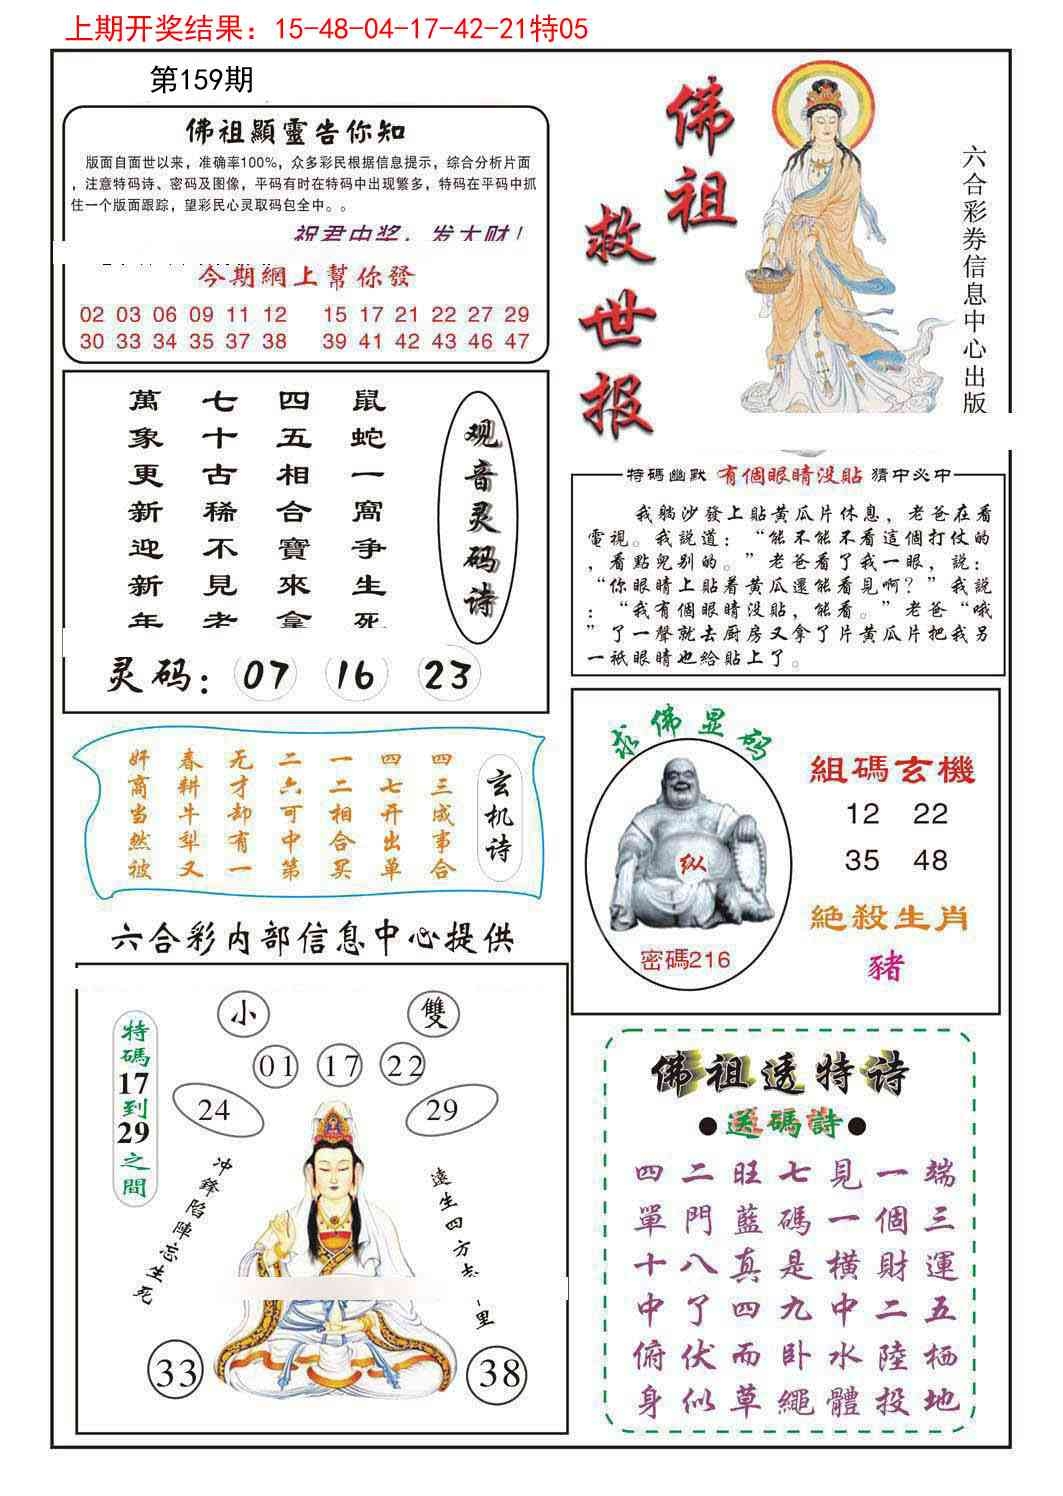 上期开奖结果：15-48-04-17-42-21特05
第159期
佛祖顯靈告你知
版面自面世以来，准确率100%，众多彩民根据信息提示，综合分析片面
，注意特码诗、密码及图像，平码有时在特码中出现繁多，特码在平码中抓
住一个版面跟踪，望彩民心灵取码包全中。。
祝君中奖，发大财！
今期網上幫你發
02 03 06 09 11 12 15 17 21 22 27 29
30 33 34 35 37 38 39 41 42 43 46 47
佛祖
救世报
六合彩券信息中心出版
鼠蛇一窩争生死
四五相合寶來拿
七十古稀不見老
萬象更新迎新年
观音灵码诗
灵码：07 16 23
特碼幽默 有個眼睛没貼 猜中必中
我躺沙發上貼黄瓜片休息，老爸在看
電視。我説道：“能不能不看這個打仗的
，看點兒别的。”老爸看了我一眼，説：
“你眼睛上貼着黄瓜還能看見啊？”我説
：“我有個眼睛没貼，能看。”老爸“哦
”了一聲就去厨房又拿了片黄瓜片把我另
一祇眼睛也給貼上了。
玄机诗
四三成事合
四七开出单
一二相合买
二六可中第
无才却有一
春耕牛犁又
奸商当然被
求佛显码
纵
密碼216
組碼玄機
12 22
35 48
絶殺生肖
豬
六合彩内部信息中心提供
小
雙
01 17 22
24
29
特碼17到29之間
冲鋒陷陣忘生死
遠生四方志
里
33
38
佛祖透特诗
●送碼詩●
四二旺七見一端
單門藍碼一個三
十八真是横財運
中了四九中二五
俯伏而卧水陸栖
身似草繩體投地